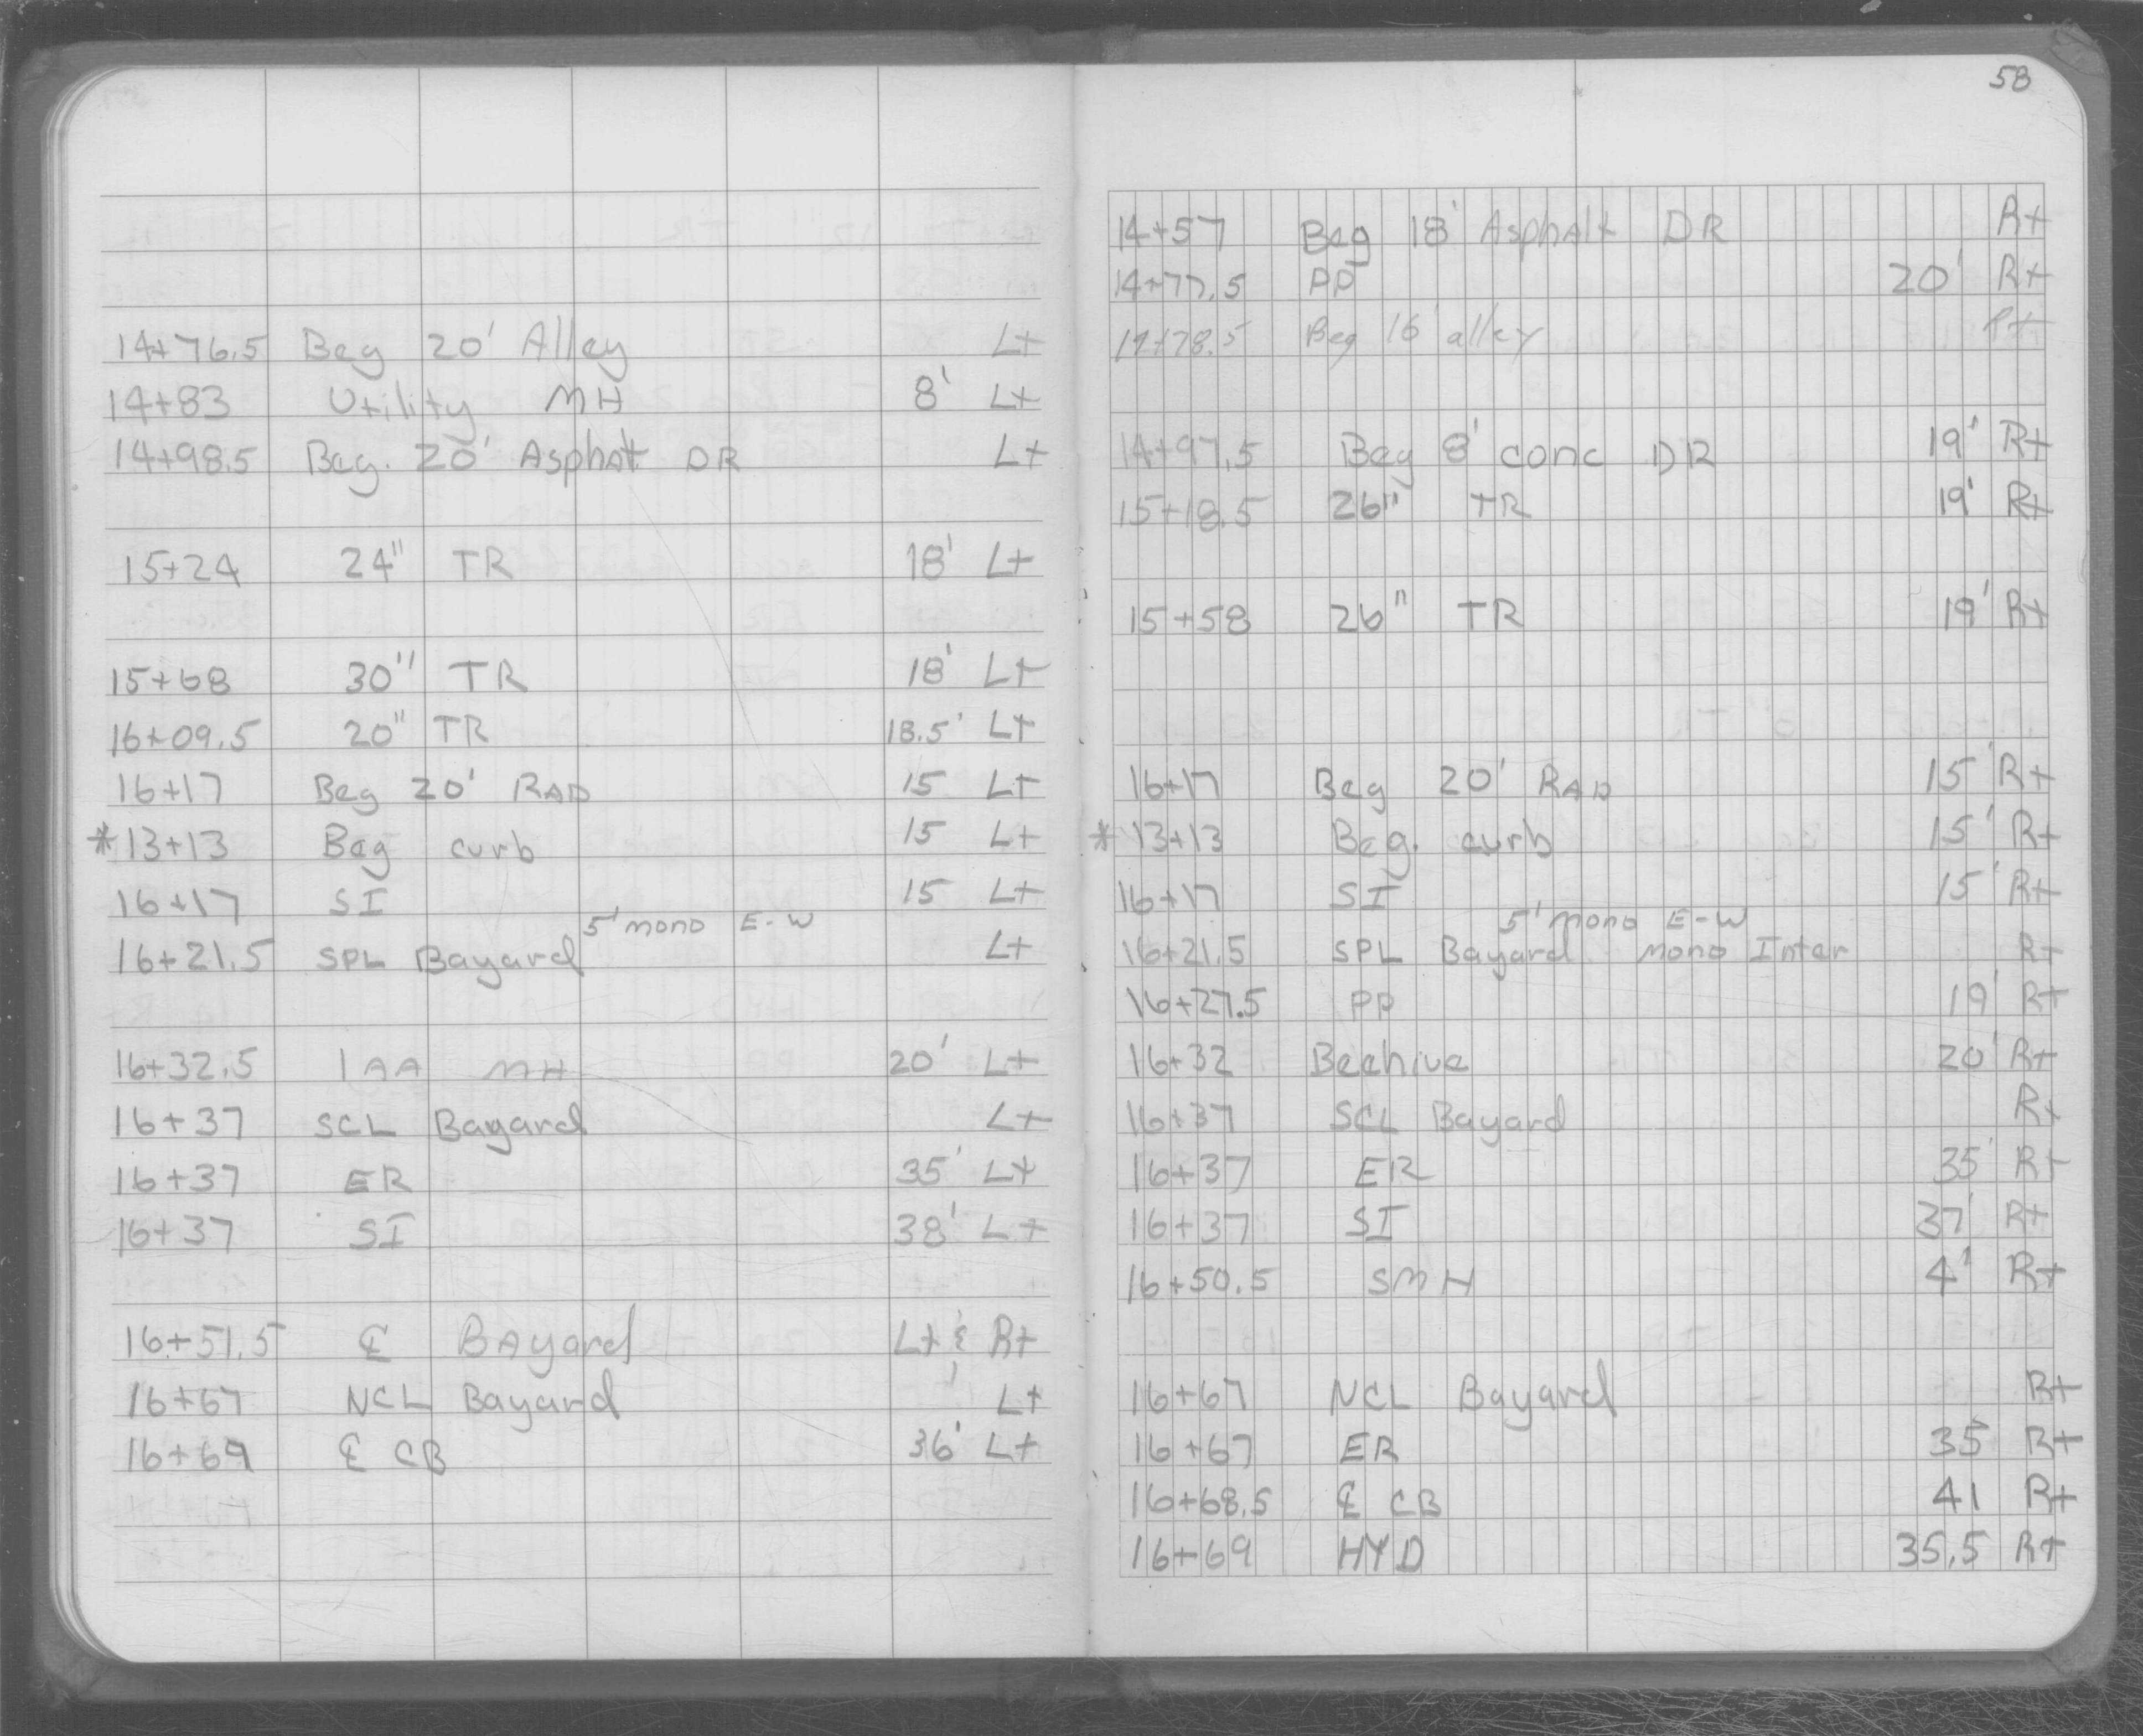 14+76.5 Beg 20' Alley Lt
14+83 Utility MH 8' Lt
14+98.5 Beg. 20' Asphalt DR Lt
15+24 24" TR 18' Lt
15+68 30" TR 18' Lt
16+09.5 20" TR 18.5' Lt
16+17 Beg 20' RAD 15 Lt
* 13+13 Beg curb 15 Lt
16+17 SI 15 Lt
5' mono E-W
16+21.5 SPL Bayard Lt
16+32.5 1AA MH 20' Lt
16+37 SCL Bayard Lt
16+37 ER 35' Lt
16+37 SI 38' Lt
16+51.5 ℄ BAyard Lt & Rt
16+67 NCL Bayard Lt
16+69 ℄ CB 36' Lt
58
14+57 Beg 18' Asphalt DR Rt
14+77.5 PP 20' Rt
14+78.5 Beg 16' alley Rt
14+97.5 Beg 8' conc DR 19' Rt
15+18.5 26" TR 19' Rt
15+58 26" TR 19' Rt
16+17 Beg 20' RAD 15' Rt
* 13+13 Beg. curb 15' Rt
16+17 SI 15' Rt
5' mono E-W
16+21.5 SPL Bayard mono Inter Rt
16+27.5 PP 19' Rt
16+32 Beehive 20' Rt
16+37 SCL Bayard Rt
16+37 ER 35' Rt
16+37 SI 37' Rt
16+50.5 SMH 4' Rt
16+67 NCL Bayard Rt
16+67 ER 35' Rt
16+68.5 ℄ CB 41 Rt
16+69 HYD 35.5 Rt